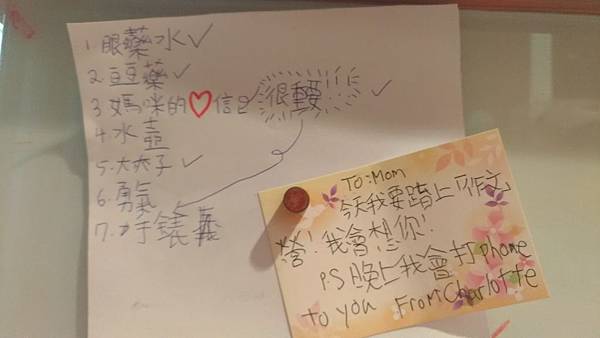 1. 眼藥水 ✓
2. 豆豆藥 ✓
3. 媽咪的♡信 很重要 ✓
4. 水壺
5. 大夾子 ✓
6. 勇氣
7. 錶
To: Mom
今天我要踏上作文
營!我會想你!
P.S 晚上我會打 phone
to you From Charlotte